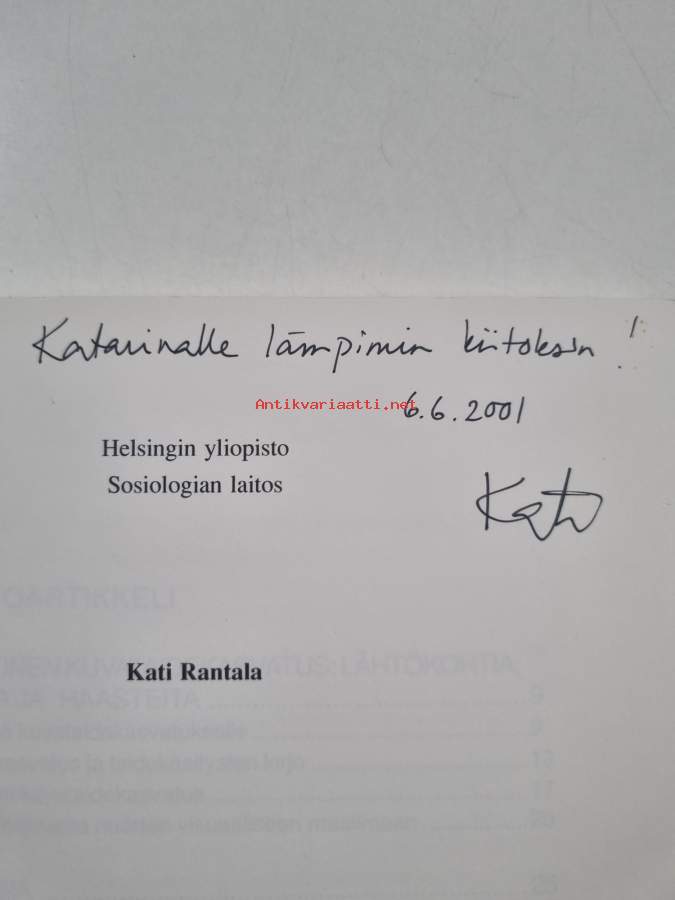 Katarinalle lämpimin kiitoksin!
Antikvariaatti.net
6.6.2001
Helsingin yliopisto
Sosiologian laitos
Kati
Kati Rantala